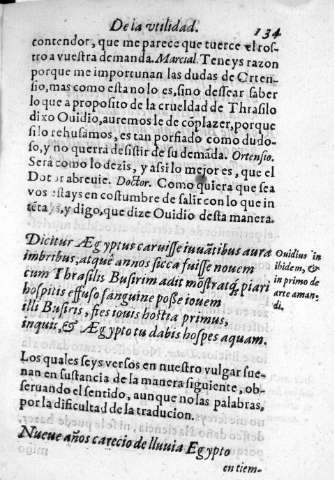 De la vtilidad.
134
contendor, que me parece que tuerce el ros-
tro a vuestra demanda. Marcial. Teneys razon
porque me importunan las dudas de Orten-
sio, mas como esta no lo es, sino dessear saber
lo que a proposito de la crueldad de Thrasilo
dixo Ouidio, auremos le de cõplazer, porque
si lo rehusamos, es tan porfiado como dudo-
so, y no querra desistir de su demãda. Ortensio.
Sera como lo dezis, y assi lo mejor es, que el
Doctor abreuie. Doctor. Como quiera que sea
vos estays en costumbre de salir con lo que in-
tẽtays, y digo, que dize Ouidio desta manera.
Dicitur Ægyptus caruisse iuuãtibus aura
imbribus, atque annos sicca fuisse nouem
cum Thrasilis Busirim adit mõstratq; piari
hospitis effuso sanguine posse iouem
illi Busiris, fies iouis hostia primus,
inquit, & Ægypto tu dabis hospes aquam.
Ouidius in
ibidem, &
in primo de
arte aman-
di.
Los quales seys versos en nuestro vulgar sue-
nan en sustancia de la manera siguiente, ob-
seruando el sentido, aunque no las palabras,
por la dificultad de la traducion.
Nueue años carecio de lluuia Egypto
en tiem-